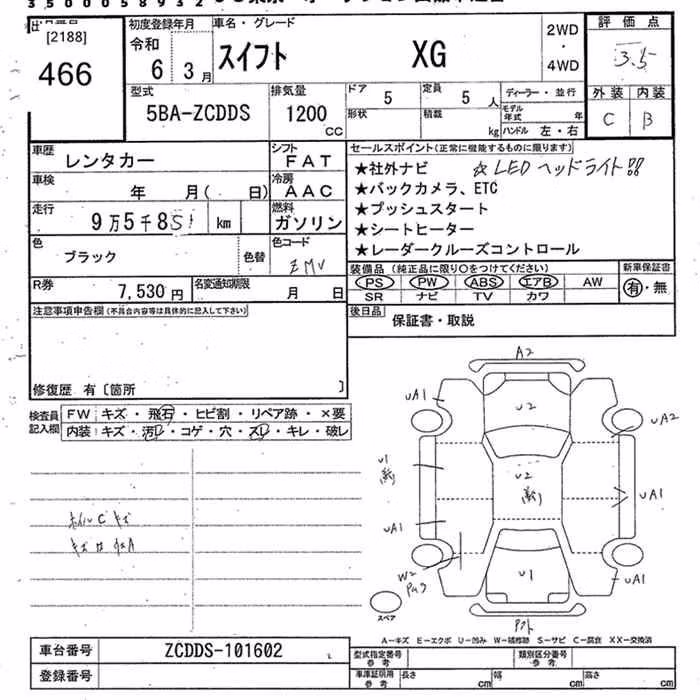 3500058932
[2188]
466
初度登録年月
令和
6 3月
車名・グレード
スイフト XG
2WD
・
4WD
評価点
3.5
外装 内装
C B
型式
5BA-ZCDDS
排気量
1200
CC
ドア 5
定員 5人
ディーラー・並行
形状
積載 kg
モデル年式 年
ハンドル 左・右
車歴 レンタカー
シフト FAT
車検 年 月( 日)
冷房 AAC
走行 9万5千8 km
燃料 ガソリン
色 ブラック
色替
色コード ZMV
R券 7,530円
名変通知期限 月 日
セールスポイント(正常に機能するものに限ります)
★社外ナビ ☆LEDヘッドライト!!
★バックカメラ、ETC
★プッシュスタート
★シートヒーター
★レーダークルーズコントロール
装備品(純正品に限り〇をつけてください)
新車保証書
PS PW ABS エアB AW
有・無
SR ナビ TV カワ
後日品 保証書・取説
注意事項申告欄(不具合内容等は具体的に記入して下さい)
修復歴 有〔箇所 〕
検査員記入欄
FW キズ・飛石・ヒビ割・リペア跡・×要
内装 キズ・汚レ・コゲ・穴・スレ・キレ・破レ
ホイルCキズ
A2
UA1
U2
UA2
U1
U2
UA1
UA1
W2
U1
UA1
スペア
A−キズ E−エクボ U−凹み W−補修跡 S−サビ C−腐食 XX−交換済
車台番号 ZCDDS-101602
登録番号
型式指定番号 参考
類別区分番号 参考
車庫証明用 参考
長さ cm
幅 cm
高さ cm